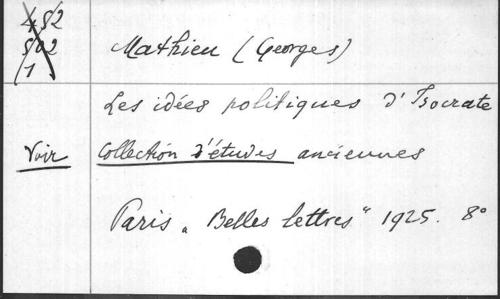 452
502
1
Mathieu (Georges)
Les idées politiques d'Isocrate
Voir Collection d'études anciennes
Paris „Belles lettres" 1925. 8°